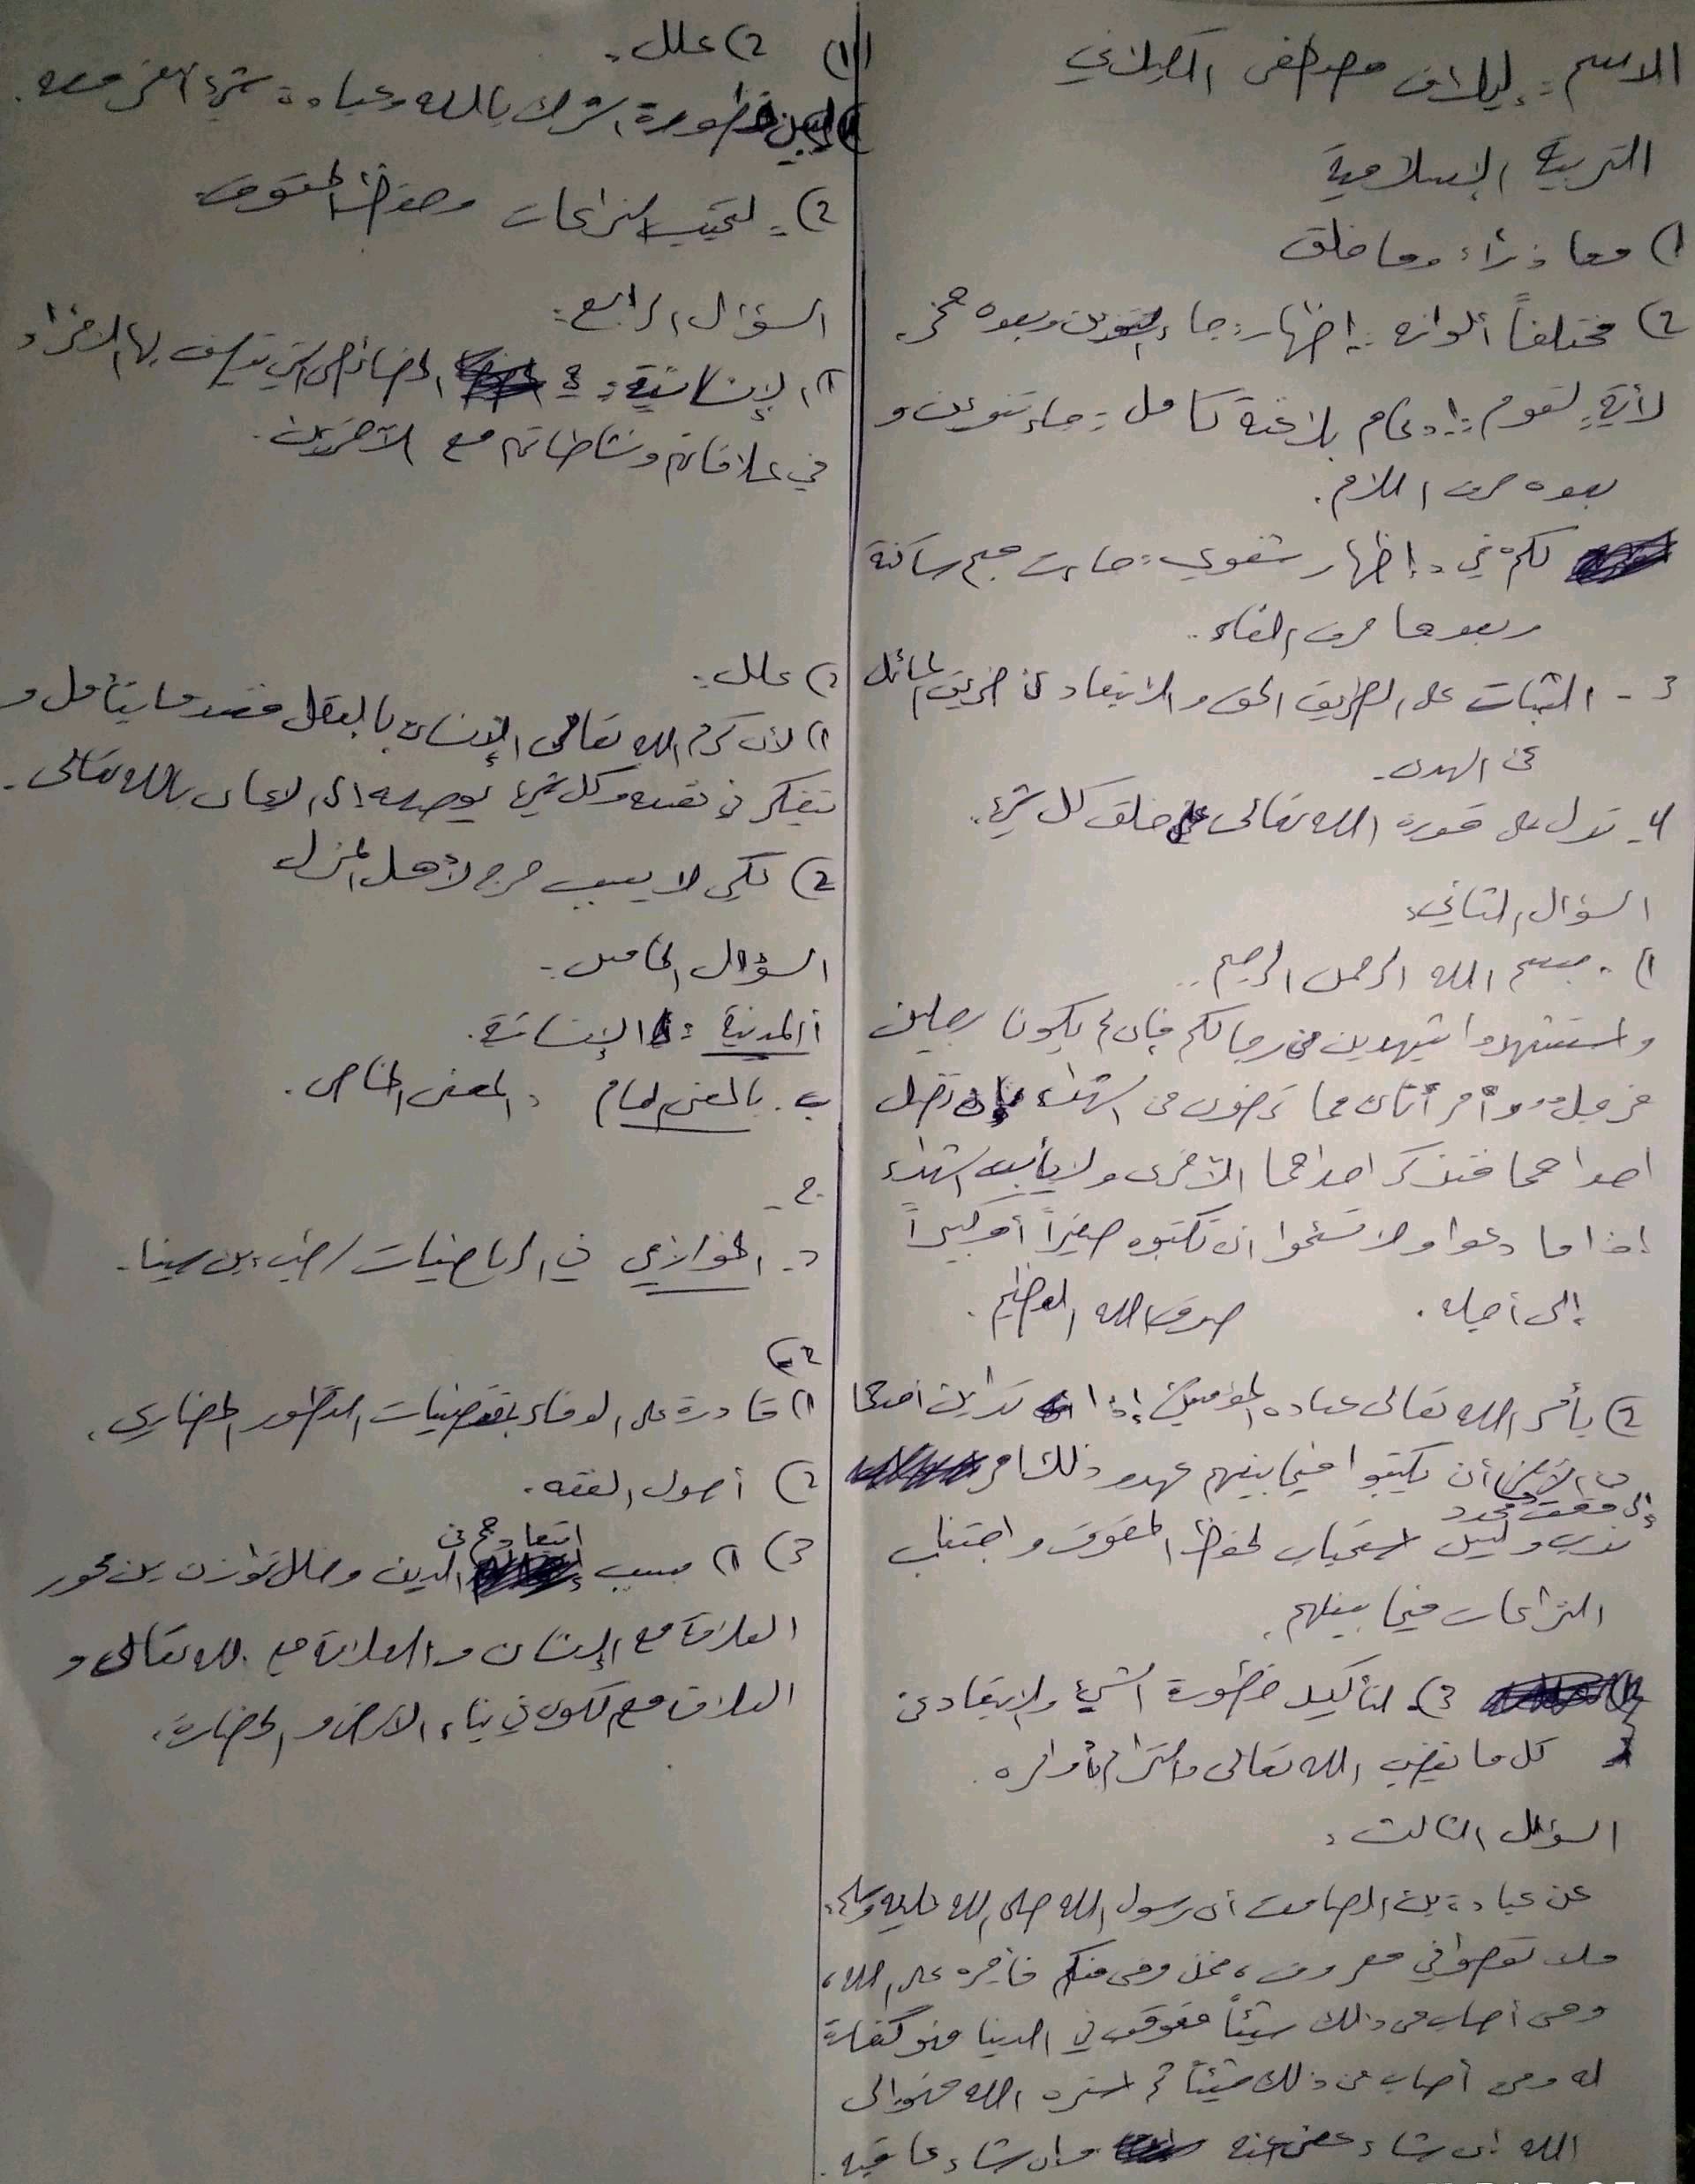 الاسم: إيلاف مصطفى
التربية الإسلامية
1) وما ذرأ، وما خلق
2) مختلفاً ألوانه: إظهار: جاء التنوين وبعده همز.
لأيةٍ لقوم: إدغام بلاغنة كامل: جاء تنوين و
بعده حرف اللام.
لكم في: إظهار شفوي: جاءت ميم ساكنة
وبعدها حرف الفاء.
3- الثبات على الطريق الحق والابتعاد عن طريق المائل
عن الهدى.
4- تدل على قدرة الله تعالى على خلق كل شيء.
السؤال الثاني:
1). بسم الله الرحمن الرحيم.
واستشهدوا شهيدين من رجالكم فإن لم يكونا رجلين
فرجل وأمرأتان مما ترضون من الشهداء أن تضل
احداهما فتذكر احداهما الأخرى ولا يأب الشهداء
إذا ما دعوا ولا تسئموا ان تكتبوه صغيراً أو كبيراً
إلى أجله. صدق الله العظيم.
2) يأمر الله تعالى عباده المؤمنين إذا تداين أحدهما
من الآخر أن يكتبوا فيما بينهم عهد وذلك امر
إلى وقت محدد
ندب وليس لحفظ الحقوق واجتناب
النزاعات فيما بينهم.
3). لتأكيد خطورة الشيء والابتعاد عن
كل ما يغضب الله تعالى والتزام بأوامره.
السؤال الثالث:
عن عبادة بن الصامت أن رسول الله صلى الله عليه وسلم:
ولا تعصوا في معروف، فمن وفى منكم فأجره على الله،
ومن أصاب من ذلك شيئاً فعوقب في الدنيا فهو كفارة
له ومن أصاب من ذلك شيئاً ثم ستره الله فهو إلى
الله إن شاء عفى عنه وإن شاء عاقبه.
2) علل:
1) ليبين خطورة الشرك بالله وعبادة شيء آخر معه.
2)- لتجنب النزاعات وحفظ الحقوق
السؤال الرابع:
1) الإنسانية: الخصائص التي تتصف بها الافراد
في علاقاتهم ونشاطاتهم مع الآخرين.
2) علل:
1) لأن كرم الله تعالى الإنسان بالعقل فعندما يتأمل و
يتفكر في نفسه وكل شيء يوصله إلى الإيمان بالله تعالى.
2) لكي لا يسبب حرج لأهل المنزل
السؤال الخامس:
أ المدنية: الإنسانية.
ب. بالمعنى العام: المعنى الخاص.
ج-
د- الخوارزمي في الرياضيات / طب: ابن سينا.
2-
1) قادرة على الوفاء بمقتضيات التطور الحضاري.
2) أصول الفقه.
3) 1) بسبب ابتعادهم عن الدين وخلل توازن بين محور
العلاقة مع الإنسان والعلاقة مع الله تعالى و
العلاقة مع الكون في بناء الأرض والحضارة.